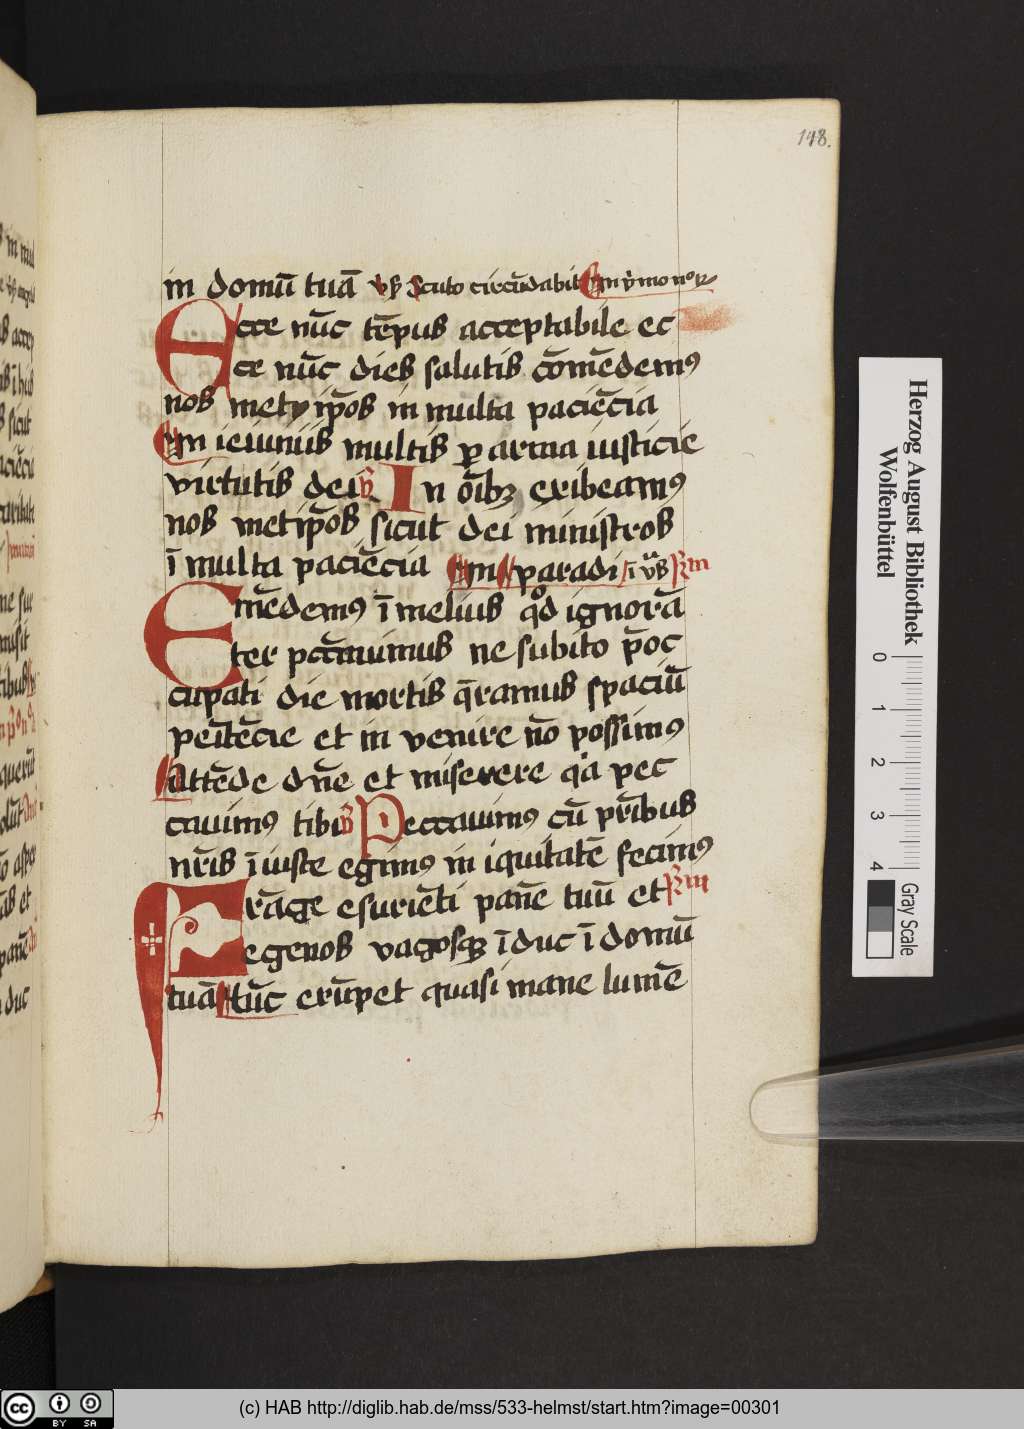 148.
in domū tuā vꝰ Scuto circūdabit
Ecce nūc tēpus acceptabile ec
ce nūc dies salutis cōmēdemꝰ
nos metyip̄os in multa paciēcia
in ieiuniis multis ꝑ arma iusticie
virtutis dei In oīb exibeamꝰ
nos metip̄os sicut dei ministros
ī multa paciēcia paradi
Emēdemꝰ ī melius qd ignorā
ter pccāuimus ne subito p̄oc
cupati die mortis q̄ramus spaciū
peītēcie et in venire nō possimꝰ
Attēde dn̄e et miserere qa pec
cauimꝰ tibi Peccauimꝰ cū pr̄ibus
nr̄is īiuste egimꝰ in iquitatē fecimꝰ
Frāge esuriēti panē tuū et
egenos vagosqꝫ īduc ī domū
tuā tūc erūpet quasi mane lumē
Herzog August Bibliothek
Wolfenbüttel
0 1 2 3 4
Gray Scale
cc BY SA
(c) HAB http://diglib.hab.de/mss/533-helmst/start.htm?image=00301